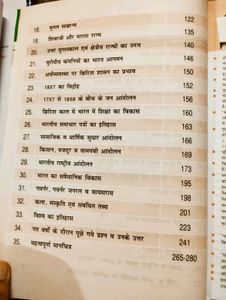 18. मुगल साम्राज्य 122
19. शिवाजी और मराठा राज्य 135
20. उत्तर मुगलकाल एवं क्षेत्रीय राज्यों का उदय 140
21. यूरोपीय कंपनियों का भारत आगमन 146
22. अर्थव्यवस्था पर ब्रिटिश शासन का प्रभाव 150
23. 1857 का विद्रोह 152
24. 1757 से 1858 के बीच के जन आंदोलन 156
25. ब्रिटिश काल में भारत में शिक्षा का विकास 160
26. भारतीय समाचार पत्रों का इतिहास 163
27. सामाजिक व धार्मिक सुधार आंदोलन 166
28. किसान, मजदूर व वामपंथी आंदोलन 169
29. भारतीय राष्ट्रीय आंदोलन 173
30. भारत का संवैधानिक विकास 195
31. गवर्नर, गवर्नर जनरल व वायसराय 198
32. कला, संस्कृति एवं संबंधित तथ्य 201
33. विश्व का इतिहास 223
34. गत वर्षों के दौरान पूछे गये प्रश्न व उनके उत्तर 241
35. महत्वपूर्ण मानचित्र 265-280